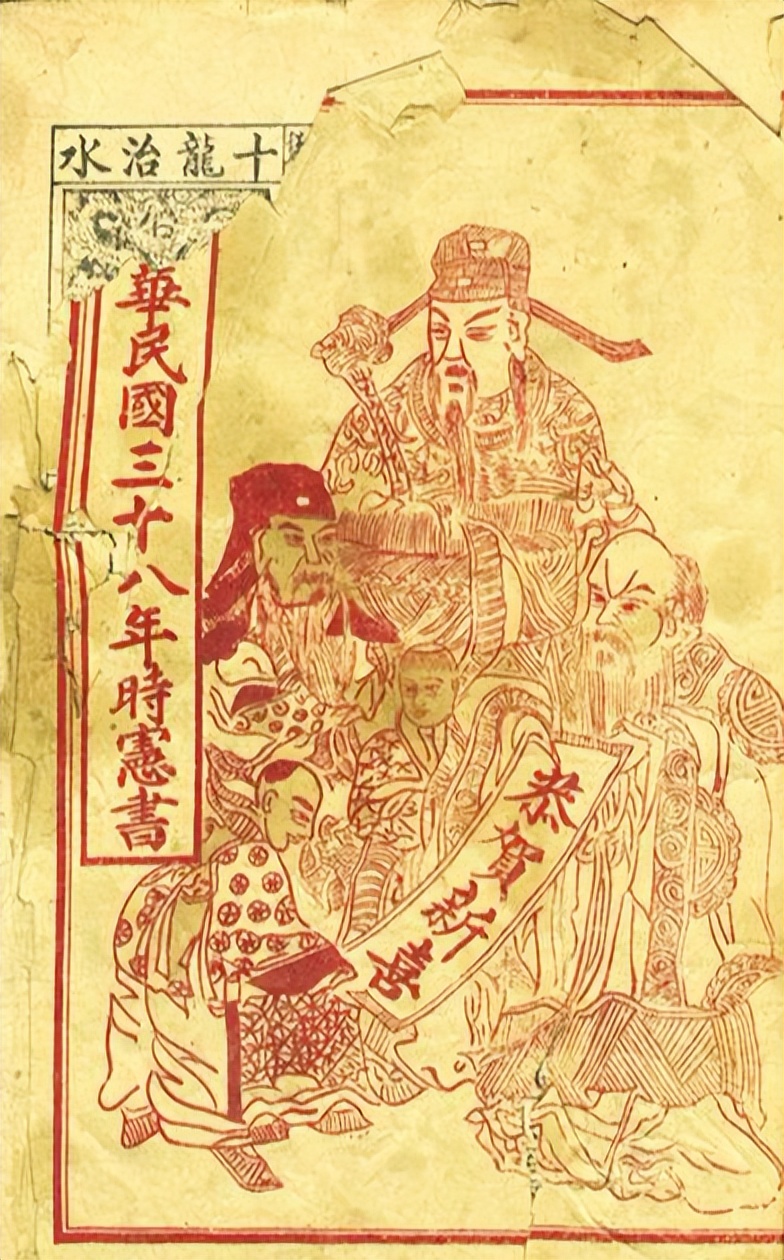 十龍治水
華民國三十八年時憲書
恭賀新喜